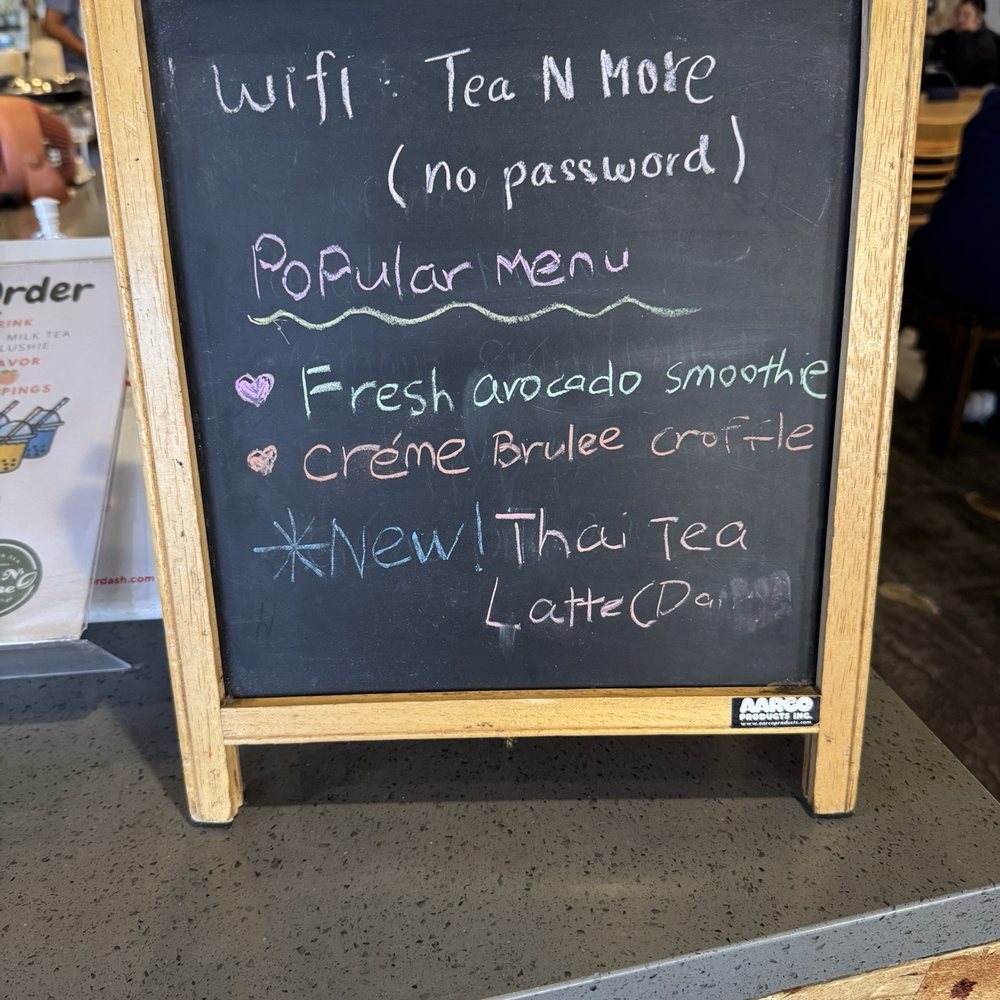 Wifi : Tea N More
(no password)
Popular menu
Fresh avocado smoothie
créme Brulee croffle
*New! Thai Tea
Latte (Dai
Order
RINK
MILK TEA
LUSHIE
AVOR
PINGS
rdash.com
AARCO
PRODUCTS INC.
www.aarcoproducts.com